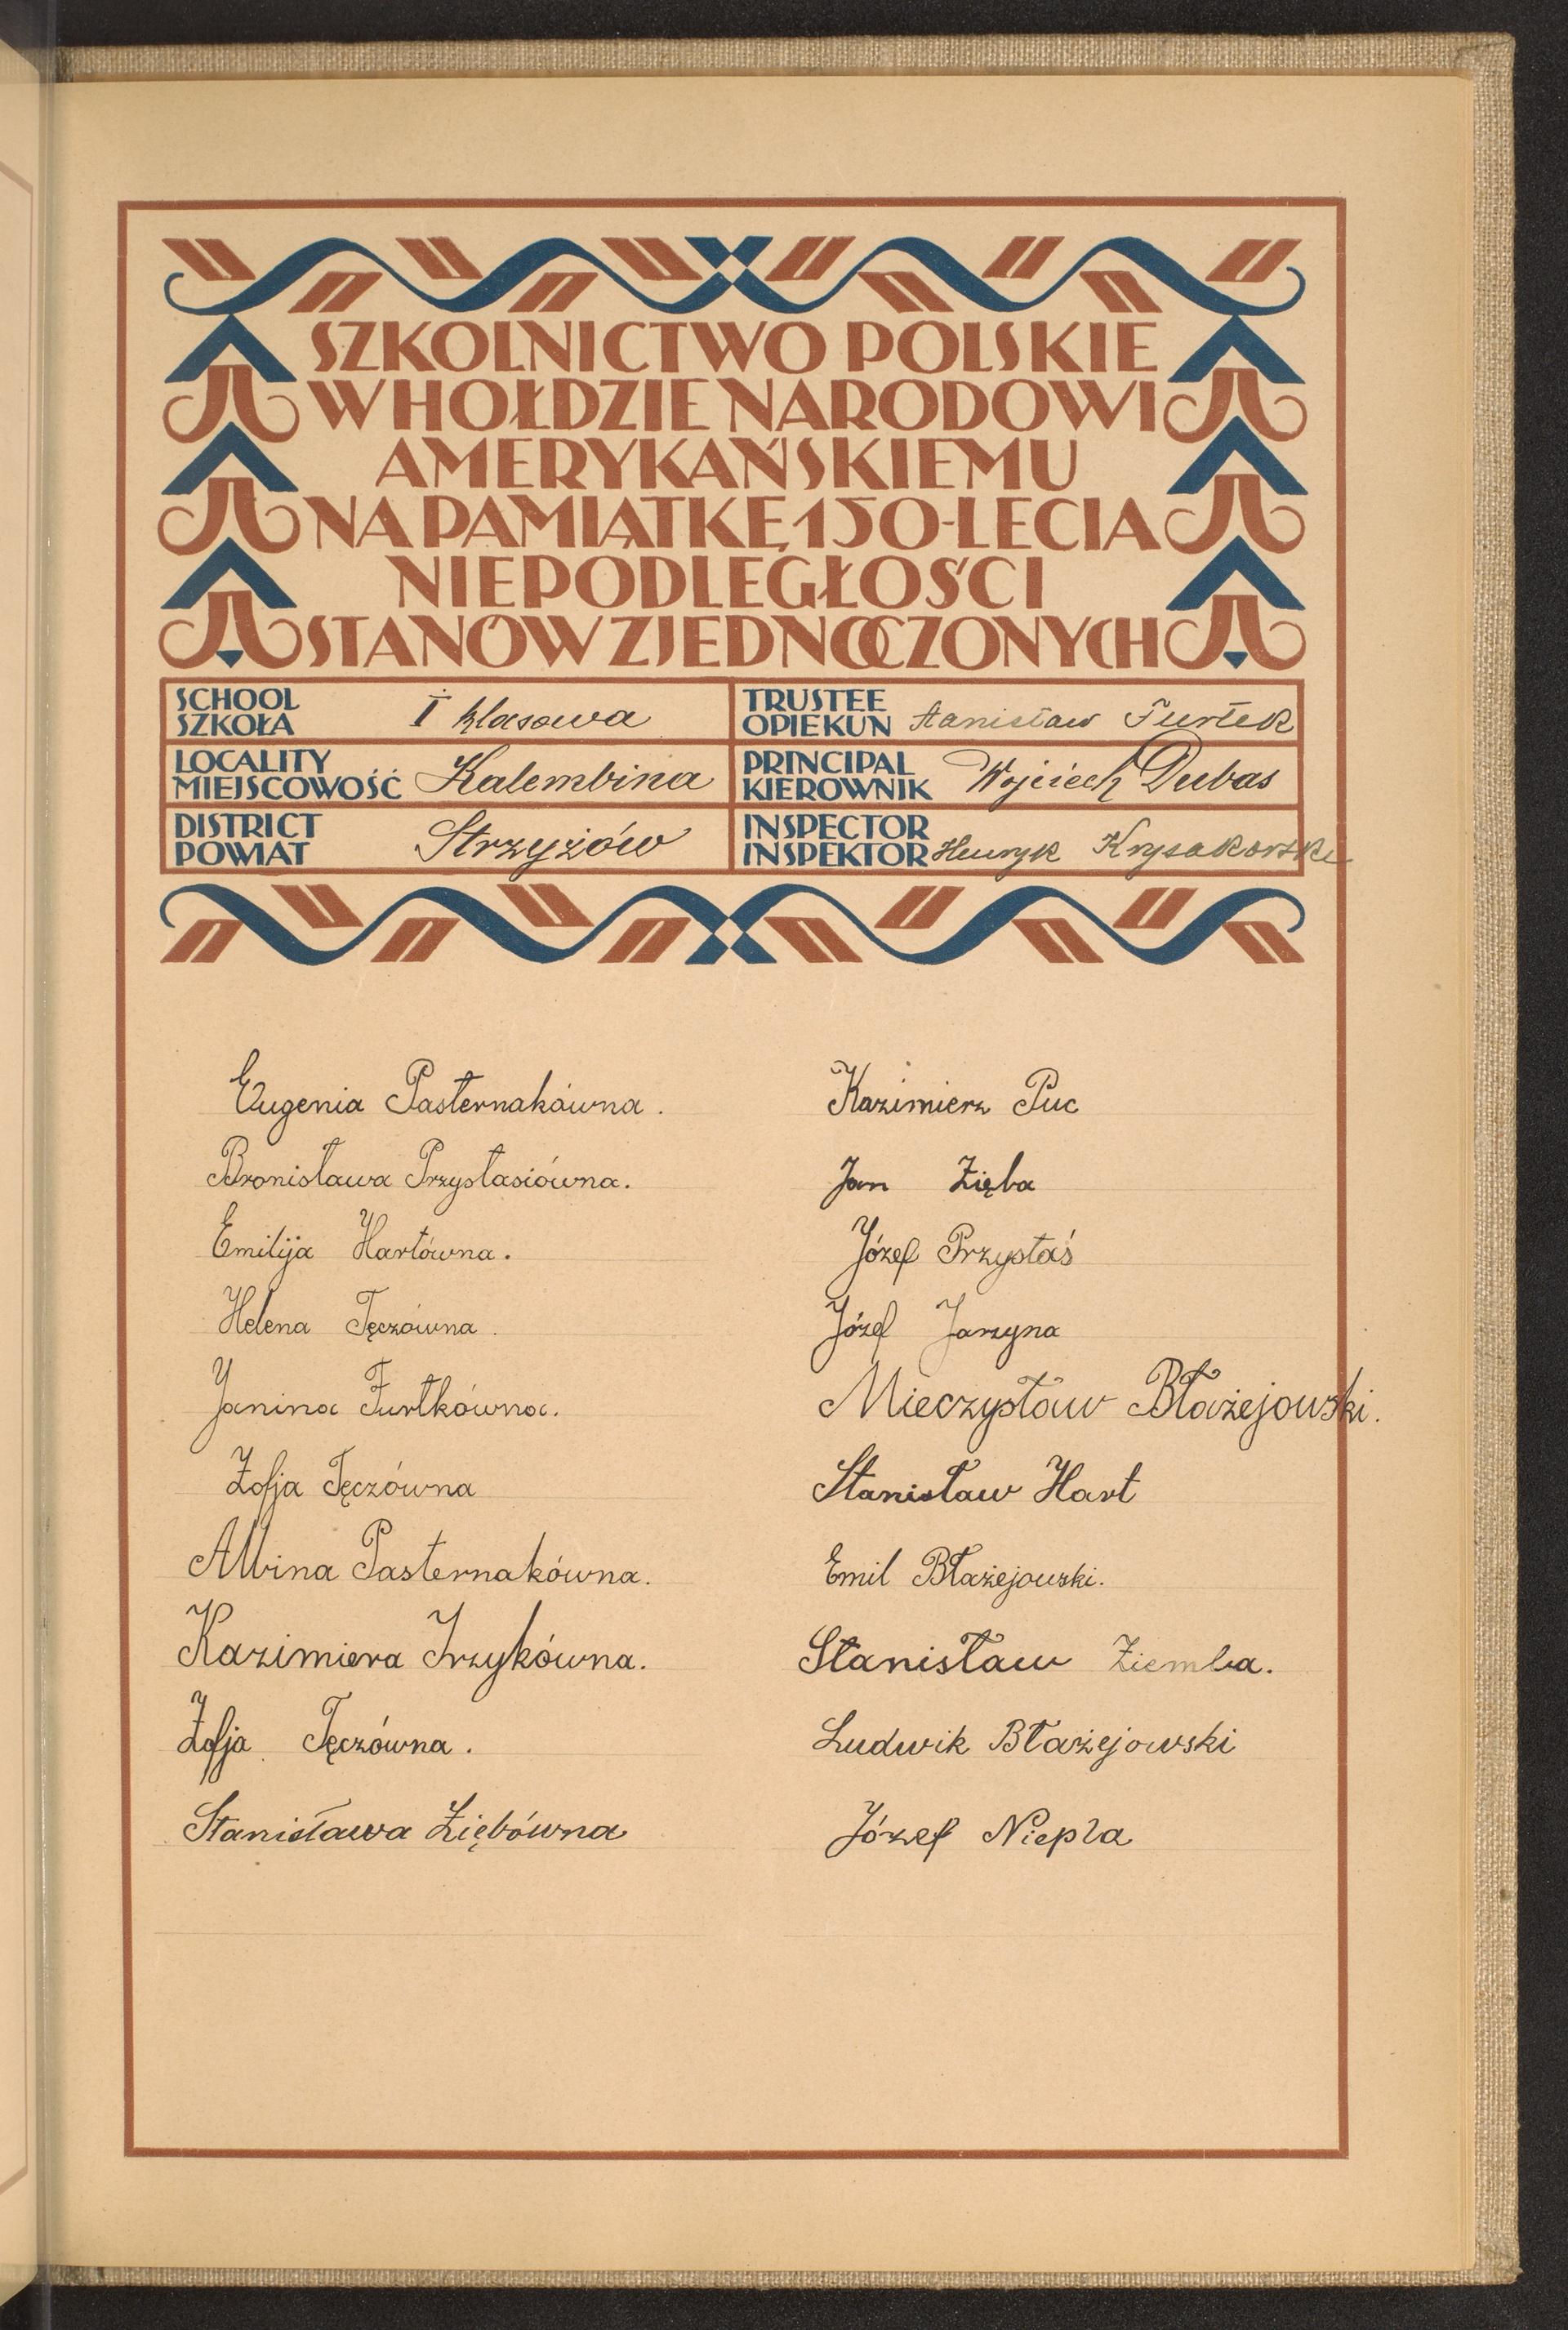 SZKOLNICTWO POLSKIE
W HOŁDZIE NARODOWI
AMERYKAŃSKIEMU
NA PAMIĄTKĘ 150-LECIA
NIEPODLEGŁOŚCI
STANÓW ZJEDNOCZONYCH
SCHOOL
SZKOŁA I klasowa
TRUSTEE
OPIEKUN Stanisław Furtek
LOCALITY
MIEJSCOWOŚĆ Kalembina
PRINCIPAL
KIEROWNIK Wojciech Dubas
DISTRICT
POWIAT Strzyżów
INSPECTOR
INSPEKTOR Henryk
Eugenia Pasternakówna.
Bronisława Przystasiówna.
Emilija Hartówna.
Helena Tęczówna.
Janina Furtkówna.
Zofja Tęczówna
Albina Pasternakówna.
Kazimiera Irzykówna.
Zofja Tęczówna.
Stanisława Ziębówna
Kazimierz Puc
Jan Zięba
Józef Przystaś
Józef Jarzyna
Mieczysław Błażejowski.
Stanisław Hart
Emil Błażejowski.
Stanisław Ziemba.
Ludwik Błażejowski
Józef Niepla